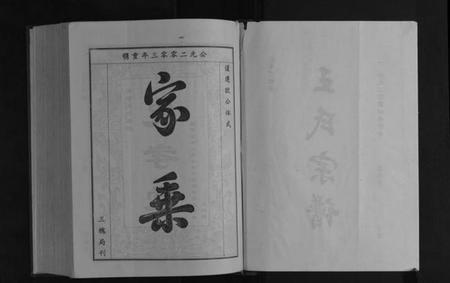 公元二零零三年重修
谨遵歐公体式
家乘
三槐局刊
王氏宗譜